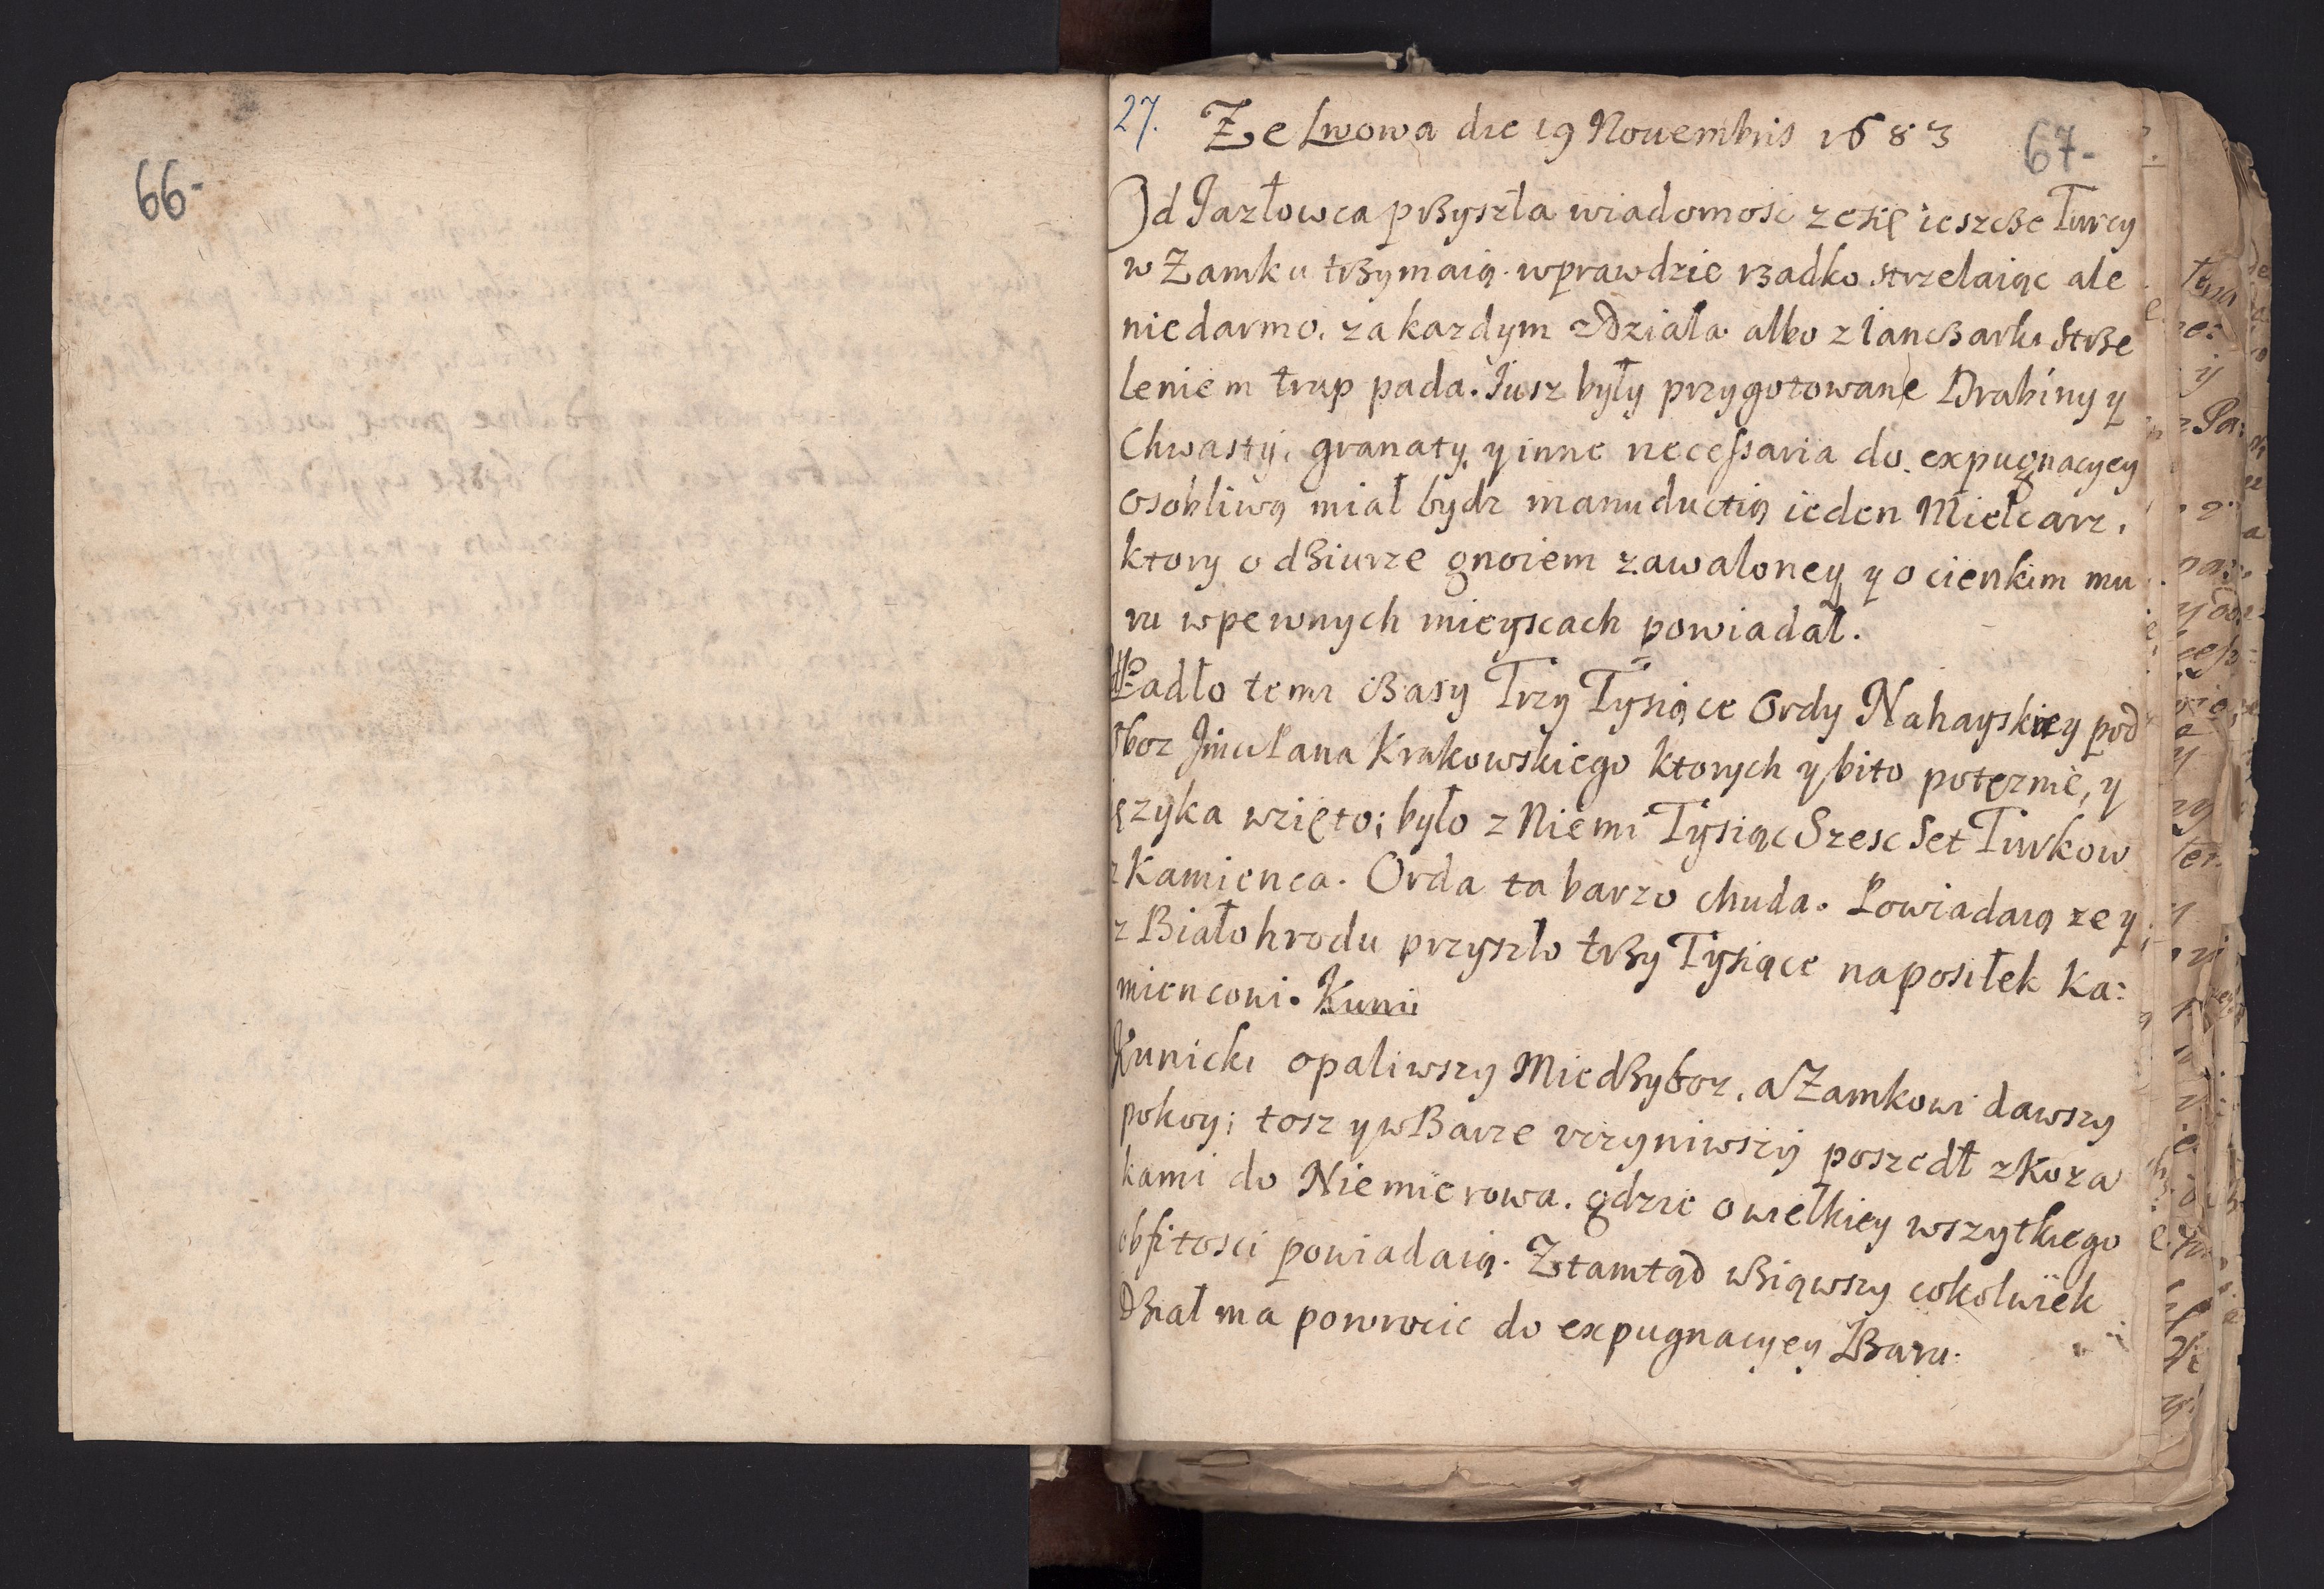 66-
27.
Ze Lwowa die 19 Nouembris 1683
67-
Od Jazłowca przyszła wiadomośc ze się ieszcze Turcy
w Zamku trzymaią. wprawdzie rzadko strzelaiąc ale
niedarmo. za kazdym z działa albo z ianczarki strze
leniem trup pada. Jusz były przygotowane Drabiny y
Chwasty, granaty, y inne necessaria do expugnacyey
osobliwą miał bydz manuductią ieden Mielcarz,
ktory o dziurze gnoiem zawaloney, y o cienkim mu
ru w pewnych mieyscach powiadał.
Padło temi czasy Trzy Tysiące Ordy Nahayskiey pod
Oboz Jmci Pana Krakowskiego ktorych y bito potęznie, y
ięzyka wzięto; było z Niemi Tysiąc Szesc Set Turkow
z Kamienca. Orda ta barzo chuda. Powiadaią ze y
z Białohrodu przyszło trzy Tysiące na posiłek Ka:
miencowi. Kuni
Kunicki opaliwszy Miedzyboz, a Zamkowi dawszy
pokoy; tosz y w Barze vczyniwszy poszedł z Koza
kami do Niemierowa. gdzie o wielkiey wszytkiego
obfitosci powiadaią. Ztamtąd wziąwszy cokolwiek
Dział ma powrocic do expugnacyey Baru.